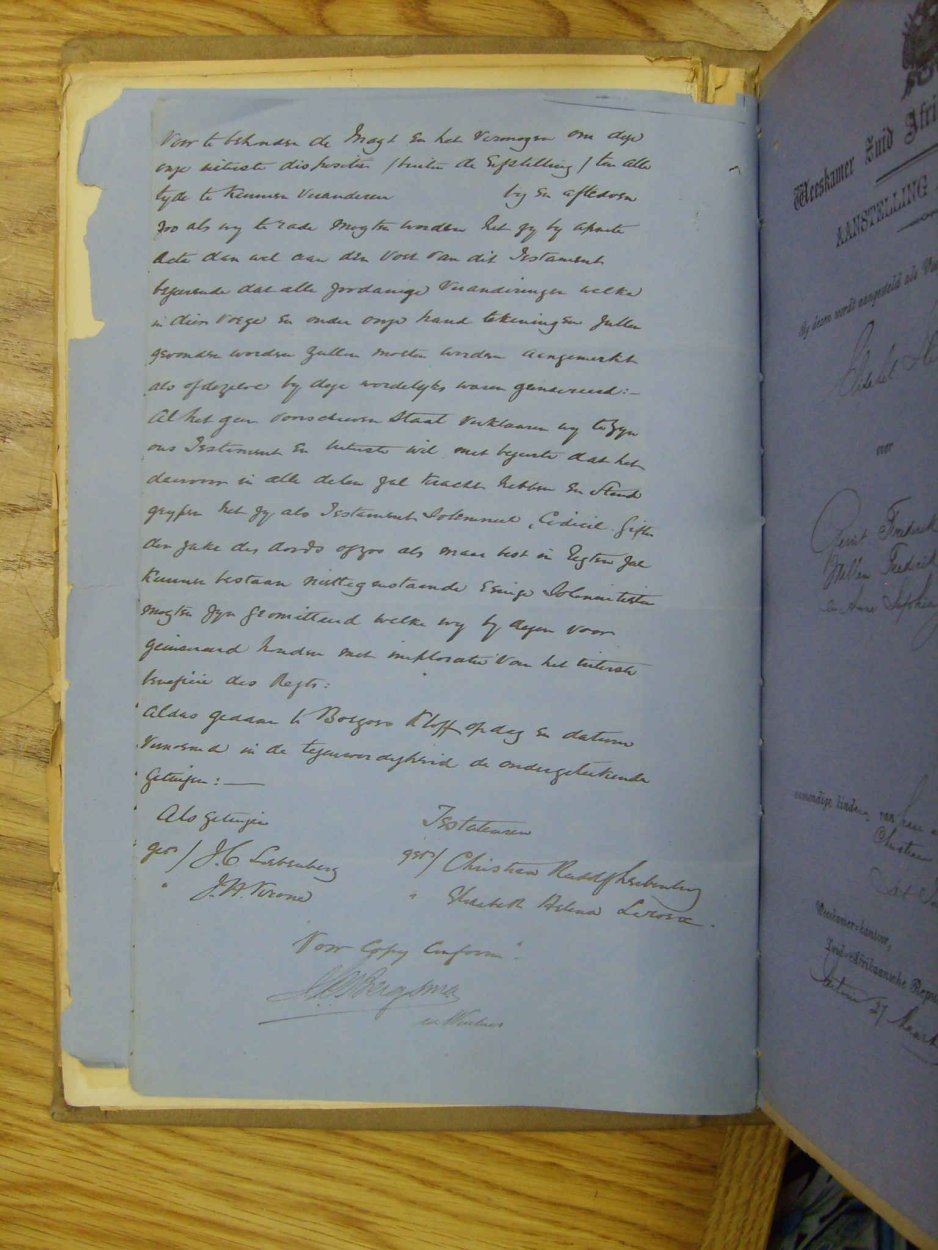 Voor te behouden de Magt en het Vermogen om deze
onze uiterste dispositie /buiten de Erfstelling/ ten alle
tyde te kunnen veranderen by en afledoen
zoo als wy te rade mogten worden het zy by aparte
acte dan wel aan den voet van dit Testament
begerende dat alle zoodanige veranderingen welke
in dier voege en onder onze hand tekeningen zullen
gevonden worden zullen moeten worden aangemerkt
als of dezelve by deze woordelyks waren geinsereerd:-
Al het geen voorschreven staat verklaaren wy te zyn
ons Testament en uiterste wil met begeerte dat het
daarvoor in alle delen zal kracht hebben en stand
grypen het zy als Testament Solemneel, Codicil, Gifte
den zake des doods of zoo als maar best in Regten zal
kunnen bestaan niettegenstaande Eenige Solemniteiten
mogten zyn geomitteerd welke wy by dezen voor
geinsereerd houden met imploratie van het uiterste
benefice des Regts:
Aldus gedaan te Boezoes Kloff op dag en datum
voornoemd in de tegenwoordigheid de ondergetekende
Getuigen:-
Als getuigen Testateuren
get/ J.C. Liebenberg get/ Christiaan Rudolf Liebenberg
" J.H. Vivone " Elizabeth Helena
Voor Copy Conform.
Bergsma
Weeskamer Zuid Afri
AANSTELLING
By dezen wordt aangesteld als Voo
over
Gerrit Frederik
Willem Frederik
en Anna Sophia
minderjarige kinderen van
Christiaan
Weeskamer-kantoor,
Zuid-Afrikaansche Repu
27 Maart